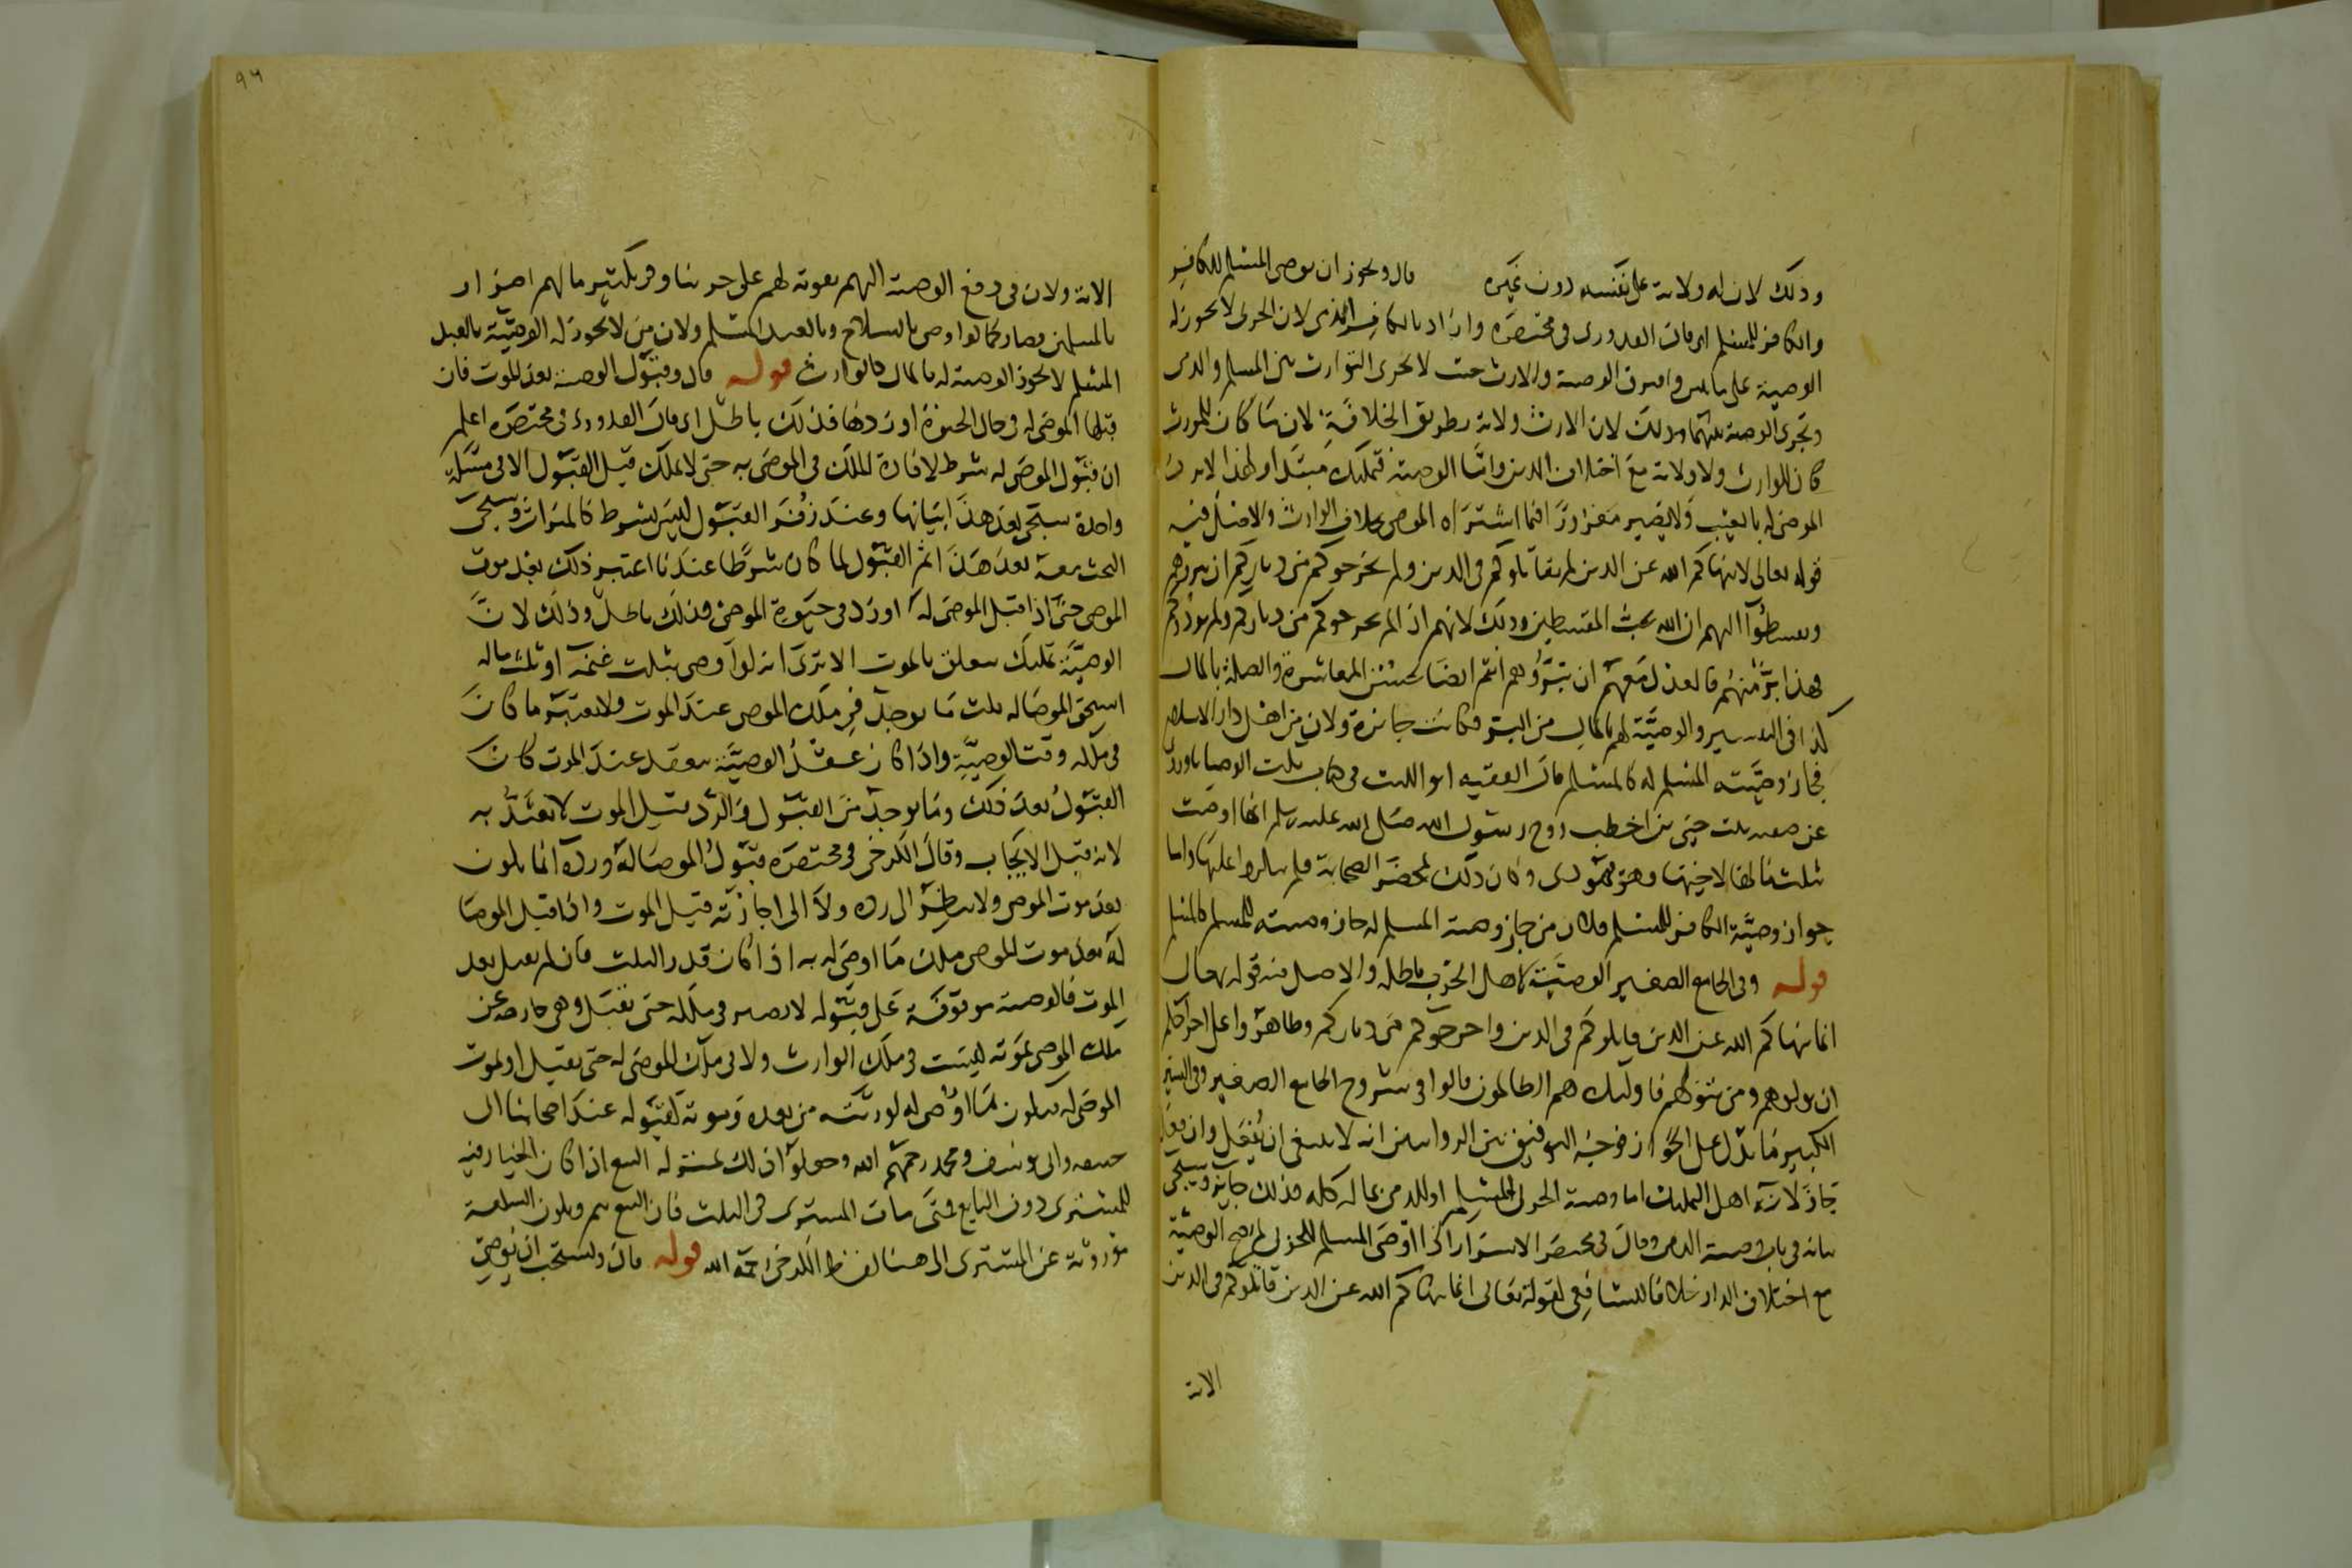 وذلك لان له ولاية على نفسه دون غيره قال ويجوز ان يوصى المسلم للكافر
والكافر للمسلم اى قال القدورى فى مختصره واراد بالكافر الذمى لان الحربى لا يجوز له
الوصية على ما وافترق الوصية والارث حيث لا يجرى التوارث بين المسلم والذمى
وتجرى الوصية بينهما وذلك لان الارث ولاية بطريق الخلافة لان ما كان للمورث
كان للوارث ولا ولاية مع اختلاف الدين واما الوصية فتمليك مبتدأ ولهذا لا يرد
الموصى له بالعيب ولا يصير مغرورا فيما اشتراه الموصى بخلاف الوارث والاصل فيه
قوله تعالى لا ينهاكم الله عن الذين لم يقاتلوكم فى الدين ولم يخرجوكم من دياركم ان تبروهم
وتقسطوا اليهم ان الله يحب المقسطين وذلك لانهم اذا لم يخرجوكم من دياركم ولم يوذوكم
فهذا بر منهم فالعدل معهم ان تبروهم انتم ايضا بحسن المعاشرة والصلة بالمال
كذا فى التفسير والوصية لهم بالمال من البر فكانت جائزة ولان من اهل دار الاسلام
فجاز وصية المسلم له كالمسلم قال الفقيه ابو الليث فى كتاب نكت الوصايا وروى
عن صفية بنت حيى بن اخطب زوج رسول الله صلى الله عليه وسلم انها اوصت
بثلث مالها لاخيها وهو يهودى وكان ذلك بمحضر الصحابة فلم ينكروا عليها واما
جواز وصية الكافر للمسلم فلان من جاز وصية المسلم له جاز وصيته للمسلم كالمسلم
قوله وفى الجامع الصغير الوصية لاهل الحرب باطلة والاصل فيه قوله تعالى
انما ينهاكم الله عن الذين قاتلوكم فى الدين واخرجوكم من دياركم وظاهروا على اخراجكم
ان تولوهم ومن يتولهم فاولئك هم الظالمون قالوا فى شروح الجامع الصغير وفى السير
الكبير ما يدل على الجواز فوجه التوفيق بين الروايتين انه لا ينبغى ان يفعل وان فعل
جاز لانه اهل التمليك اما وصية الحربى للمسلم او للذمى بماله كله فذلك جائز وسيجى
بيانه فى باب وصية الذمى وقال فى مختصر الاسرار اذا اوصى المسلم للحربى لم تصح الوصية
مع اختلاف الدار خلافا للشافعى لقوله تعالى انما ينهاكم الله عن الذين قاتلوكم فى الدين
الاية
٩٦
الاية ولان فى دفع الوصية اليهم تقوية لهم على حربنا وفى تكثير مالهم اضرار
بالمسلمين فصار كما لو اوصى بالسلاح وبالعبد المسلم ولان من لا يجوز له الوصية بالعبد
المسلم لا يجوز الوصية له بالمال كالوارث قوله قال وقبول الوصية بعد الموت فان
قبلها الموصى له فى حال الحيوة او ردها فذلك باطل اى قال القدورى فى مختصره اعلم
ان قبول الموصى له شرط لافادة الملك فى الموصى به حتى لا يملك قبل القبول الا فى مسئلة
واحدة سيجى بعد هذا بيانها وعند زفر القبول ليس بشرط كالميراث وسيجى
البحث معه بعد هذا ثم القبول لما كان شرطا عندنا اعتبر ذلك بعد موت
الموصى حتى اذا قبل الموصى له او رد فى حيوة الموصى فذلك باطل وذلك لان
الوصية تمليك يتعلق بالموت الا ترى انه لو اوصى بثلث غنمه او ثلث ماله
استحق الموصا له ثلث ما يوجد فى ملك الموصى عند الموت ولا يعتبر ما كان
فى ملكه وقت الوصية واذا كان عقد الوصية ينعقد عند الموت كان
القبول بعد ذلك وما يوجد من القبول والرد قبل الموت لا يعتد به
لانه قبل الايجاب وقال الكرخى فى مختصره قبول الموصا له ورده انما يكون
بعد موت الموصى ولا ينظر الى رده ولا الى اجازته قبل الموت واذا قبل الموصا
له بعد موت الموصى ملك ما اوصى له به اذا كان قدر الثلث فان لم يقبل بعد
الموت فالوصية موقوفة على قبوله لا تصير فى ملكه حتى يقبل وهى خارجة عن
ملك الموصى بموته ليست فى ملك الوارث ولا فى ملك الموصى له حتى يقبل او يموت
الموصى له فيكون ما اوصى له لورثته من بعده وموته كقبوله عند اصحابنا ابى
حنيفة وابى يوسف ومحمد رحمهم الله وجعلوا ذلك بمنزلة البيع اذا كان الخيار فيه
للمشترى دون البايع فمتى مات المشترى فى الثلث فان البيع يتم ويكون السلعة
موروثة عن المشترى الى هنا لفظ الكرخى رحمه الله قوله قال ويستحب ان يوصى